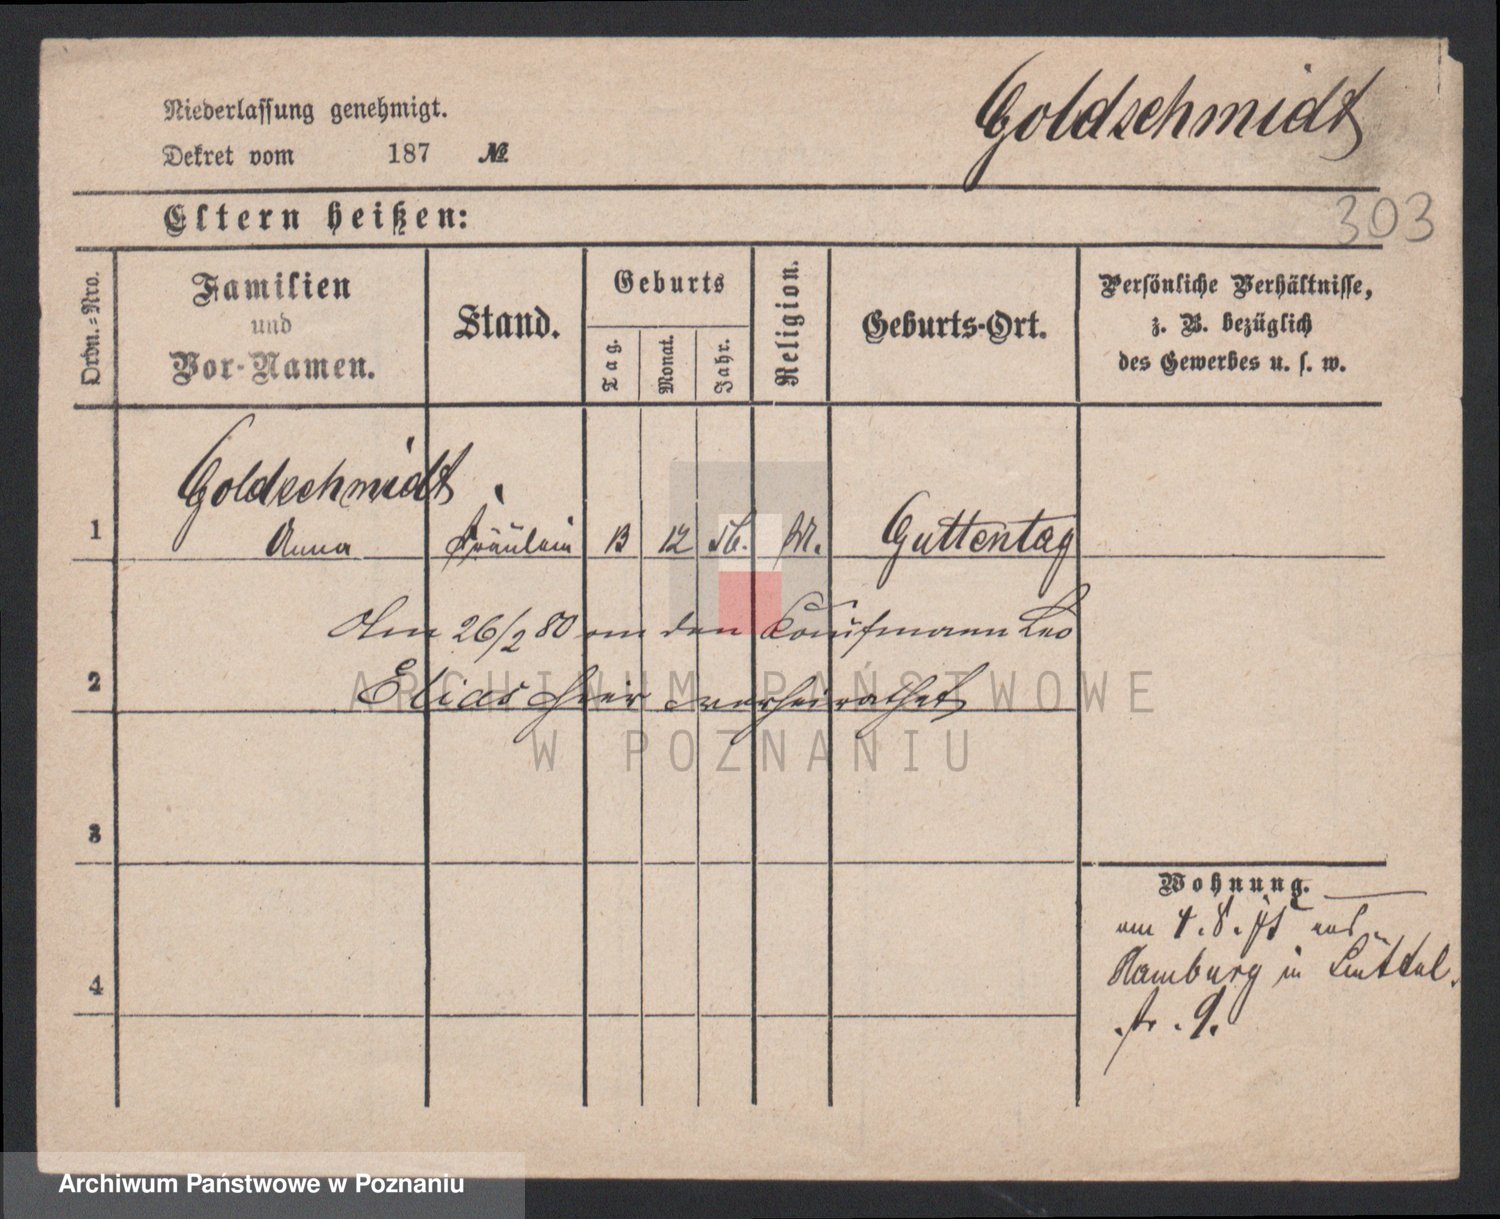 Goldschmidt
Niederlassung genehmigt.
Dekret vom 187 №
303
Eltern heißen:
Ordn.-Nro.
Familien
und
Vor-Namen.
Stand.
Geburts
Tag.
Monat.
Jahr.
Religion.
Geburts-Ort.
Persönliche Verhältnisse,
z. B. bezüglich
des Gewerbes u. s. w.
Goldschmidt
1 Anna Fräulein 13 12 56. M. Guttentag
Am 26/2 80 an den Kaufmann Leo
2 Elias hier verheirathet
3
4
Wohnung.
am 4. 8. 75 aus
Hamburg in
str. 9.
ARCHIWUM PAŃSTWOWE
W POZNANIU
Archiwum Państwowe w Poznaniu